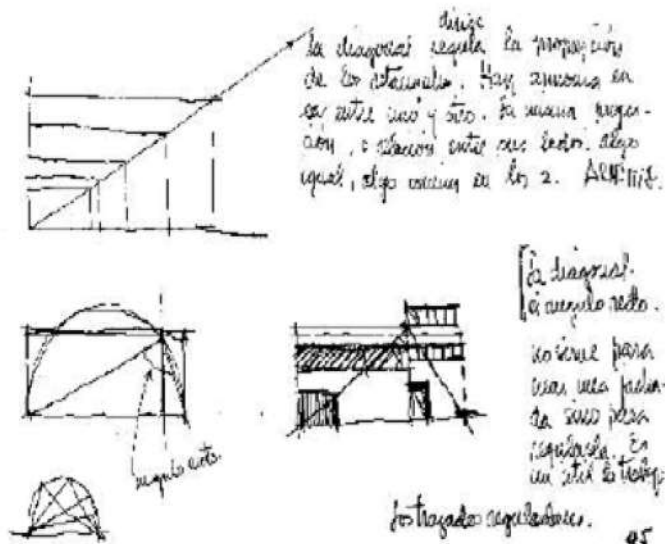 dirige
la diagonal regula la proporción
de los rectángulos. Hay armonía en
entre uno y otro. La misma
ción, o relación entre sus lados. Algo
igual, algo común en los 2.
[la diagonal.
el ángulo recto.
no sirve para
crear una facha-
da sino para
regularla. Es
un útil de trabajo
ángulo recto.
los trazados reguladores.
95